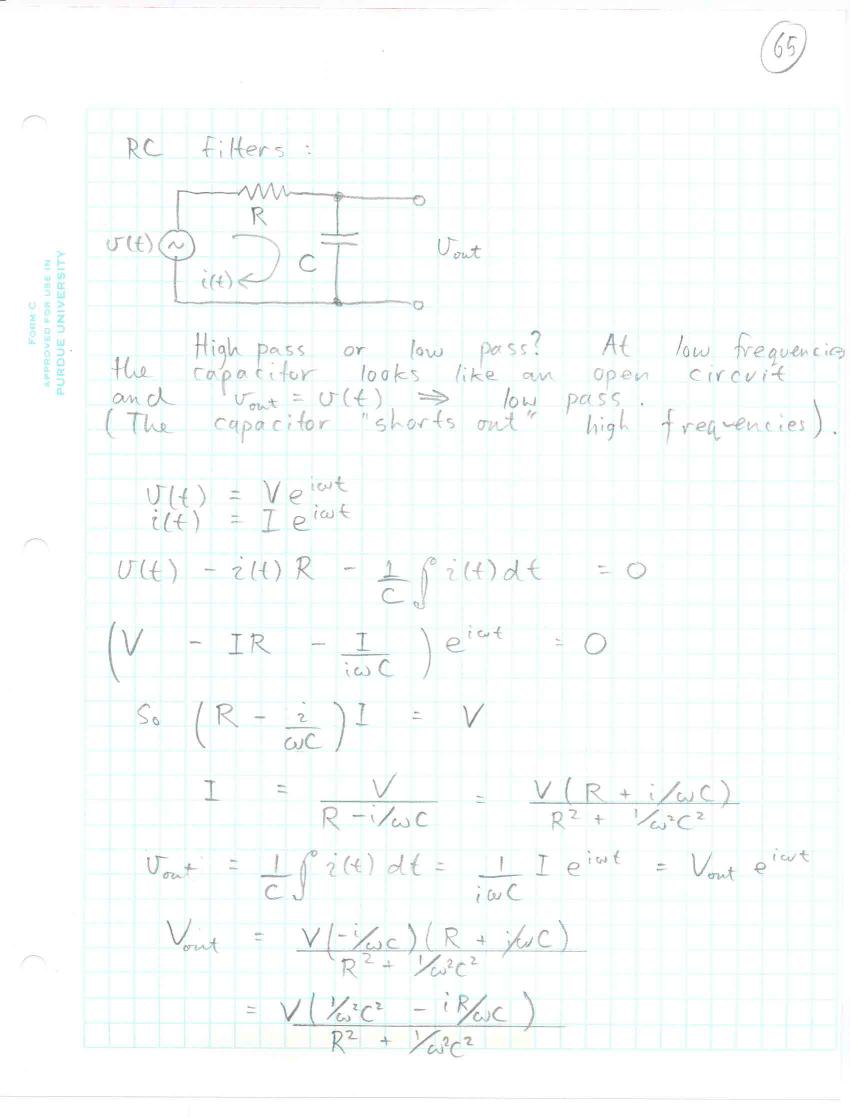 65
FORM C
APPROVED FOR USE IN
PURDUE UNIVERSITY
RC filters :
R
v(t)
~
C
i(t)
Vout
High pass or low pass? At low frequencies
the capacitor looks like an open circuit
and vout = v(t) ⇒ low pass.
(The capacitor "shorts out" high frequencies).
v(t) = V e^{iωt}
i(t) = I e^{iωt}
v(t) - i(t) R - 1/C ∫ i(t) dt = 0
(V - IR - I/(iωC)) e^{iωt} = 0
So (R - i/(ωC)) I = V
I = V/(R - i/ωC) = V(R + i/ωC)/(R² + 1/ω²C²)
vout = 1/C ∫ i(t) dt = 1/(iωC) I e^{iωt} = Vout e^{iωt}
Vout = V(-i/ωC)(R + i/ωC)/(R² + 1/ω²C²)
= V(1/ω²C² - iR/ωC)/(R² + 1/ω²C²)